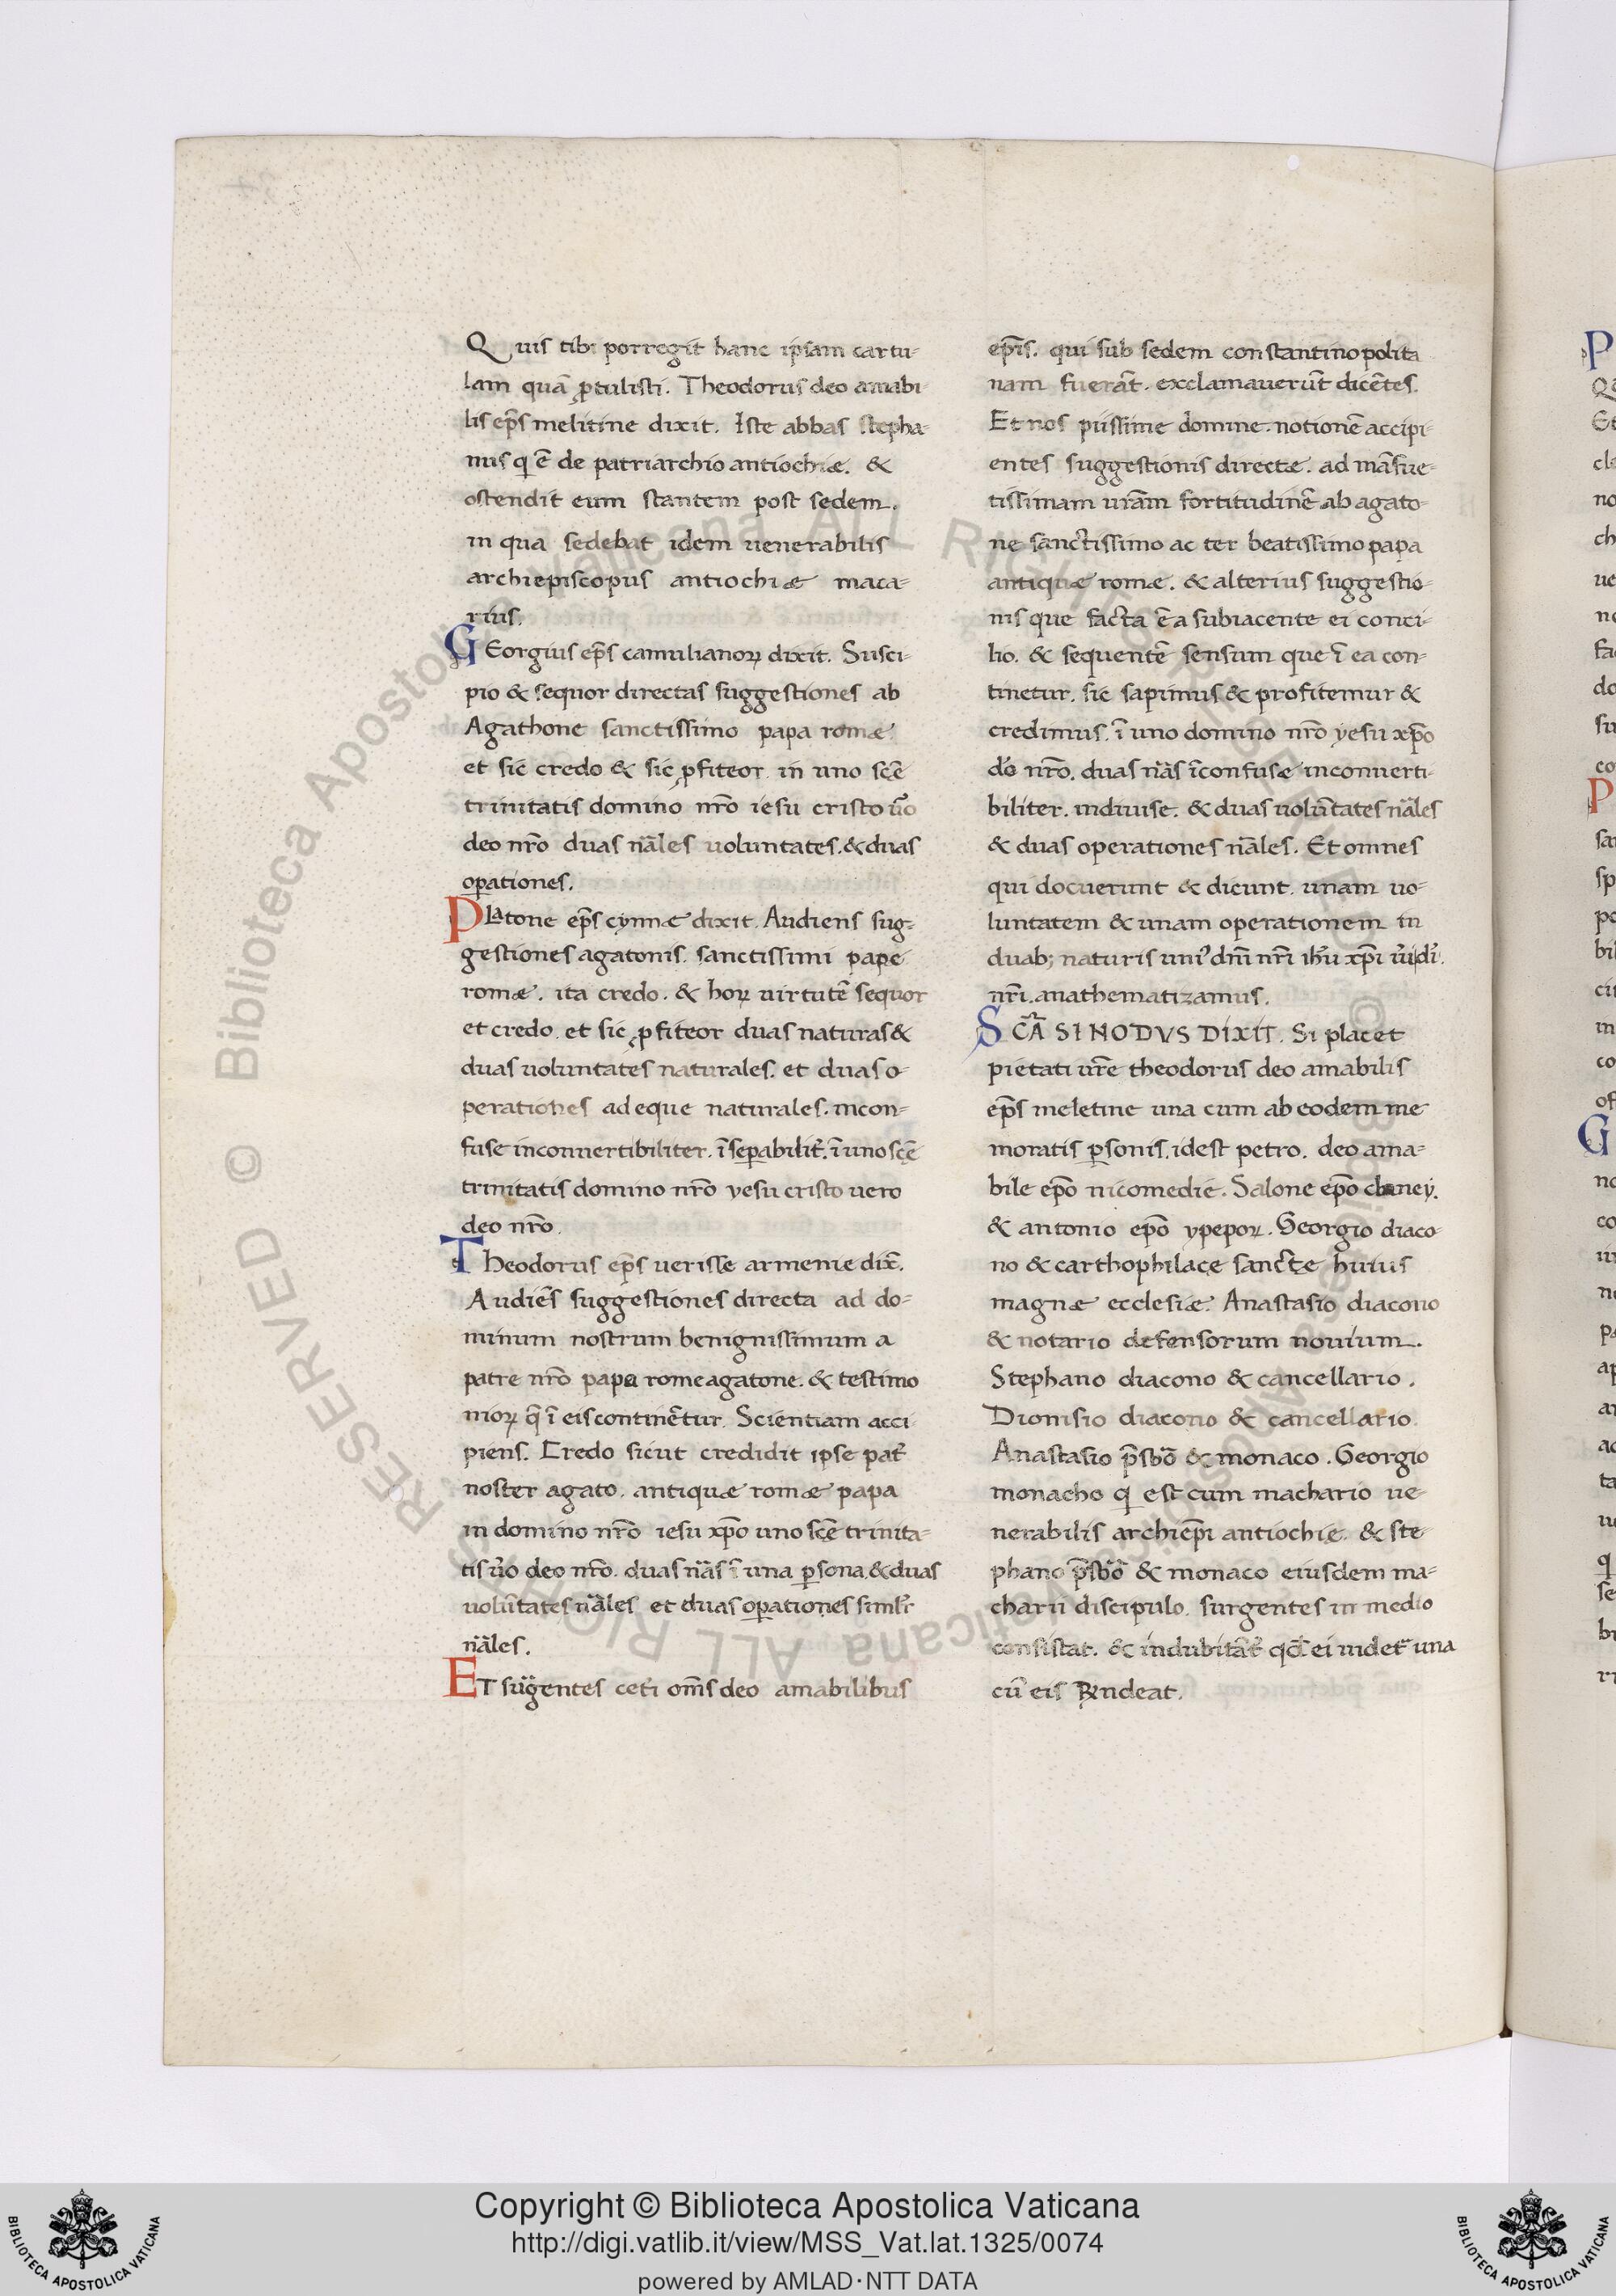 Quis tibi porregit hanc ipsam cartu-
lam quā ꝓtulisti. Theodorus deo amabi
lis ep̄s melitine dixit. Iste abbas stepha-
nus q ē de patriarchio antiochiæ. &
ostendit eum stantem post sedem.
in qua sedebat idem uenerabilis
archiepiscopus antiochiæ maca-
rius.
GEorgius ep̄s camulianoꝝ dixit. Susci-
pio & sequor directas suggestiones ab
Agathone sanctissimo papa romæ
et sic credo & sic ꝓfiteor in uno scē
trinitatis domino nr̄o iesu cristo ūo
deo nr̄o duas nāles uoluntates. & duas
oꝑationes.
PLatone ep̄s cynnæ dixit. Audiens sug-
gestiones agatonis. sanctissimi pape
romæ. ita credo. & hoꝝ uirtutē sequor
et credo. et sic ꝓfiteor duas naturas &
duas uoluntates naturales. et duas o-
perationes adeque naturales. incon-
fuse inconuertibiliter. īseꝑabilit̄. ī uno scē
trinitatis domino nr̄o yesu cristo uero
deo nr̄o.
Theodorus ep̄s uerisse armenie dix̄.
Audiēs suggestiones directa ad do-
minum nostrum benignissimum a
patre nr̄o papa rome agatone. & testimo
nioꝝ q̄ ī eis continētur. Scientiam acci
piens. Credo sicut credidit ipse pat̄
noster agato. antiquæ romæ papa
in domino nr̄o iesu xp̄o uno scē trinita-
tis ūo deo nr̄o. duas nās ī una ꝑsona. & duas
uolūtates nāles et duas oꝑationes simlr̄
nāles.
ET sugentes ceti om̄s deo amabilibus
ep̄is. qui sub sedem constantinopolita
nam fuerāt. exclamauerūt dicētes.
Et nos piissime domine. notionē accipi
entes suggestionis directæ. ad māsue-
tissimam ur̄am fortitudinē ab agato-
ne sanctissimo ac ter beatissimo papa
antiquæ romæ. & alterius suggestio-
nis que facta ē a subiacente ei conci-
lio. & sequentē sensum que ī ea con-
tinetur. sic sapimus & profitemur &
credimus. ī uno domino nr̄o yesu xp̄o
dō nr̄o. duas nās īconfusæ inconuerti-
biliter. indiuise. & duas uolūtates nāles
& duas operationes nāles. Et omnes
qui docuerunt & dicunt. unam uo-
luntatem & unam operationem in
duab; naturis uni' dn̄i nr̄i ih̄u xp̄i ūi di.
nr̄i. anathematizamus.
SCĀ SINODVS DIXIT. Si placet
pietati ur̄e theodorus deo amabilis
ep̄s meletine una cum ab eodem me
moratis ꝑsonis. idest petro. deo ama-
bile ep̄o nicomedie. Salone ep̄o claney.
& antonio ep̄o ypepoꝝ. Georgio diaco-
no & carthophilace sancte huius
magnæ ecclesiæ. Anastasio diacono
& notario defensorum nouium.
Stephano diacono & cancellario.
Dionisio diacono & cancellario.
Anastasio p̄sb̄o & monaco. Georgio
monacho q est cum machario ue-
nerabilis archiep̄i antiochie. & ste
phano p̄sb̄o & monaco eiusdem ma-
charii discipulo. surgentes in medio
consistat. & indubitāt̄ qd̄ ei uidet̄ una
cū eis Rn̄deat.
Copyright © Biblioteca Apostolica Vaticana
http://digi.vatlib.it/view/MSS_Vat.lat.1325/0074
powered by AMLAD·NTT DATA